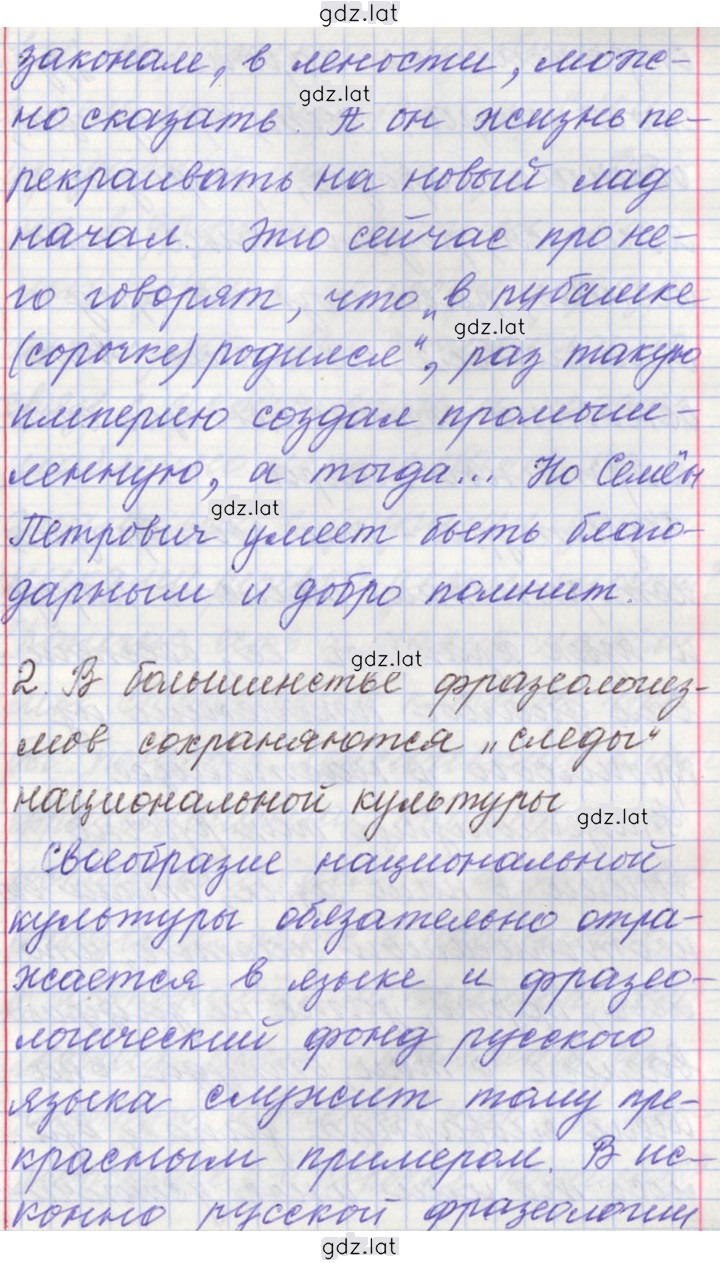 gdz.lat
законам, в лености, мож-
gdz.lat
но сказать. А он жизнь пе-
рекраивать на новый лад
начал. Это сейчас про не-
го говорят, что „в рубашке
gdz.lat
(сорочке) родился“, раз такую
империю создал промыш-
ленную, а тогда... Но Семён
gdz.lat
Петрович умеет быть благо-
дарным и добро помнит.
gdz.lat
2. В большинстве фразеологиз-
мов сохраняются „следы“
национальной культуры
gdz.lat
Своеобразие национальной
культуры обязательно отра-
жается в языке и фразео-
логический фонд русского
языка служит тому пре-
красным примером. В ис-
конно русской фразеологии
gdz.lat